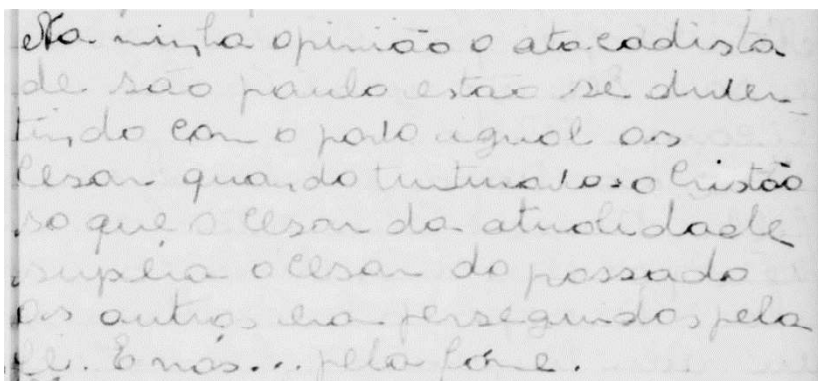 Na minha opinião o atacadista
de são paulo estão se diver-
tindo com o povo igual os
Cesar quando torturava o Cristão
so que o Cesar da atualidade
supéra o Cesar do passado
os outros era perseguidos pela
fé. E nós... pela fóme.